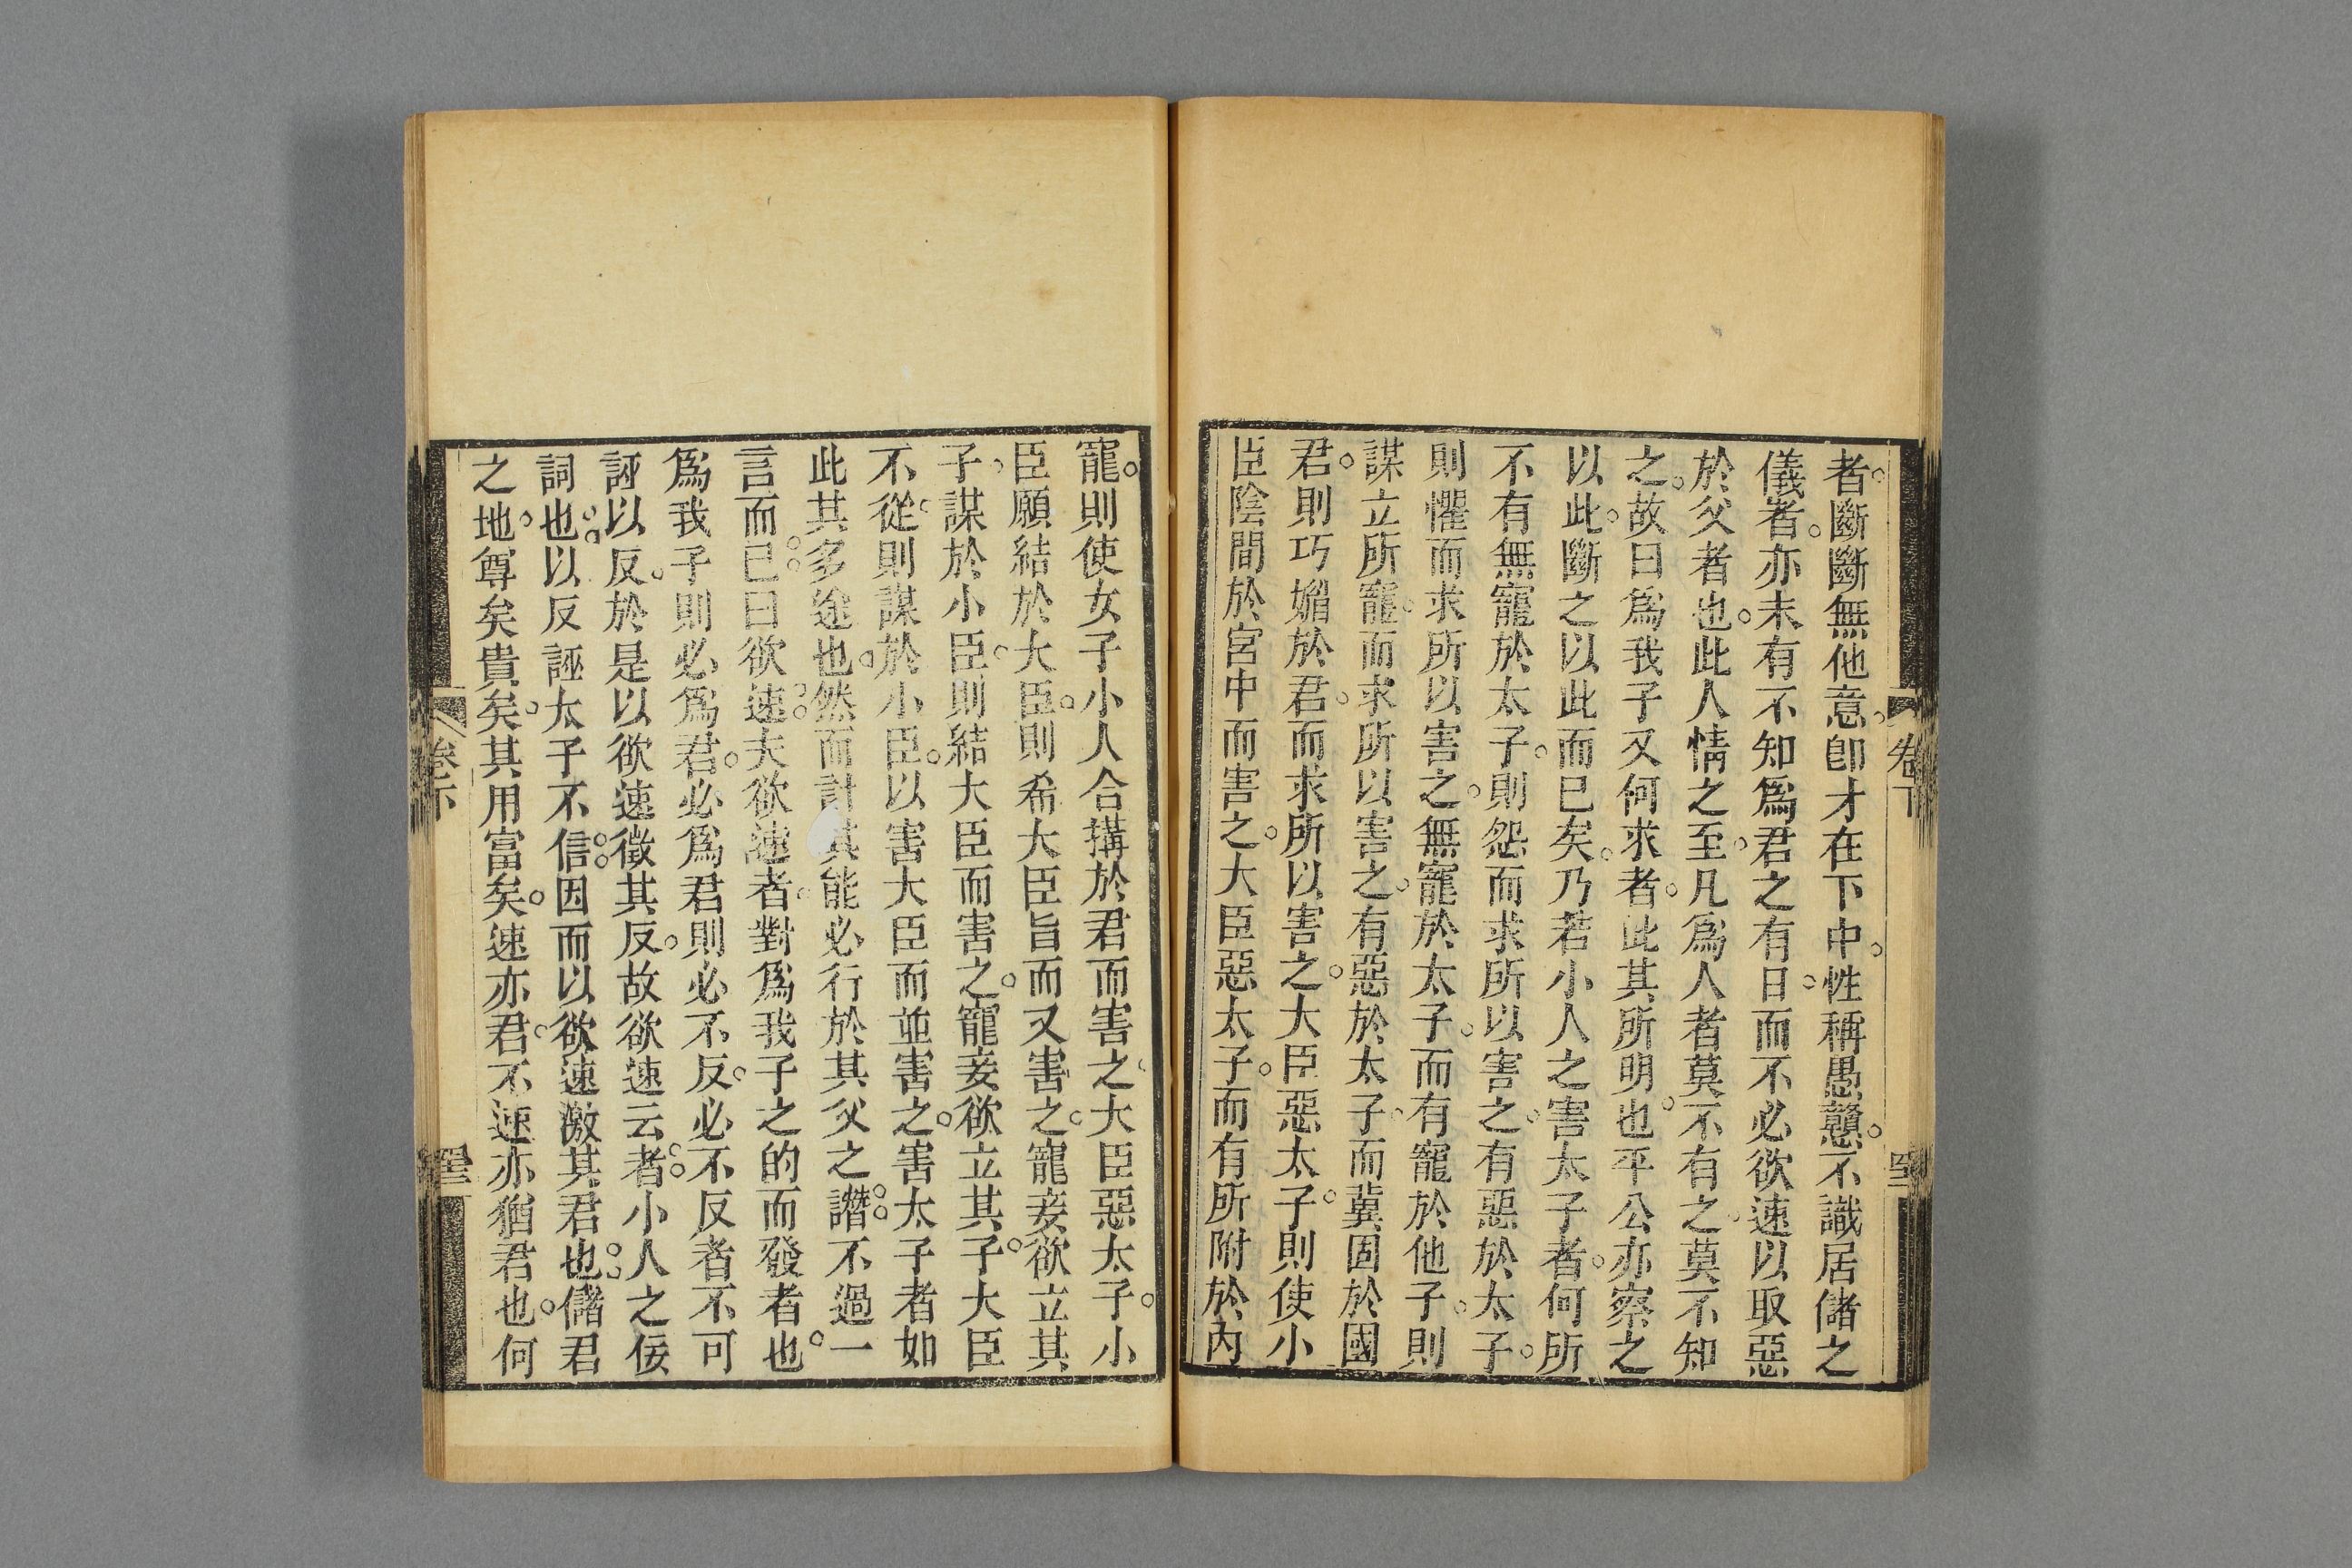 者斷斷無他意卽才在下中性稱愚戇不識居儲之
儀者亦未有不知爲君之有日而不必欲速以取惡
於父者也此人情之至凡爲人者莫不有之莫不知
之故曰爲我子又何求者此其所明也平公亦察之
以此斷之以此而已矣乃若小人之害太子者何所
不有無寵於太子則怨而求所以害之有惡於太子
則懼而求所以害之無寵於太子而有寵於他子則
謀立所寵而求所以害之有惡於太子而冀固於國
君則巧媚於君而求所以害之大臣惡太子則使小
臣陰間於宮中而害之大臣惡太子而有所附於內
寵則使女子小人合搆於君而害之大臣惡太子小
臣願結於大臣則希大臣旨而又害之寵妾欲立其
子謀於小臣則結大臣而害之寵妾欲立其子大臣
不從則謀於小臣以害大臣而並害之害太子者如
此其多途也然而計其能必行於其父之譖不過一
言而已曰欲速夫欲速者對爲我子之的而發者也
爲我子則必爲君必爲君則必不反必不反者不可
誣以反於是以欲速徵其反故欲速云者小人之佞
詞也以反誣太子不信因而以欲速激其君也儲君
之地尊矣貴矣其用富矣速亦君不速亦猶君也何
卷下
卷下